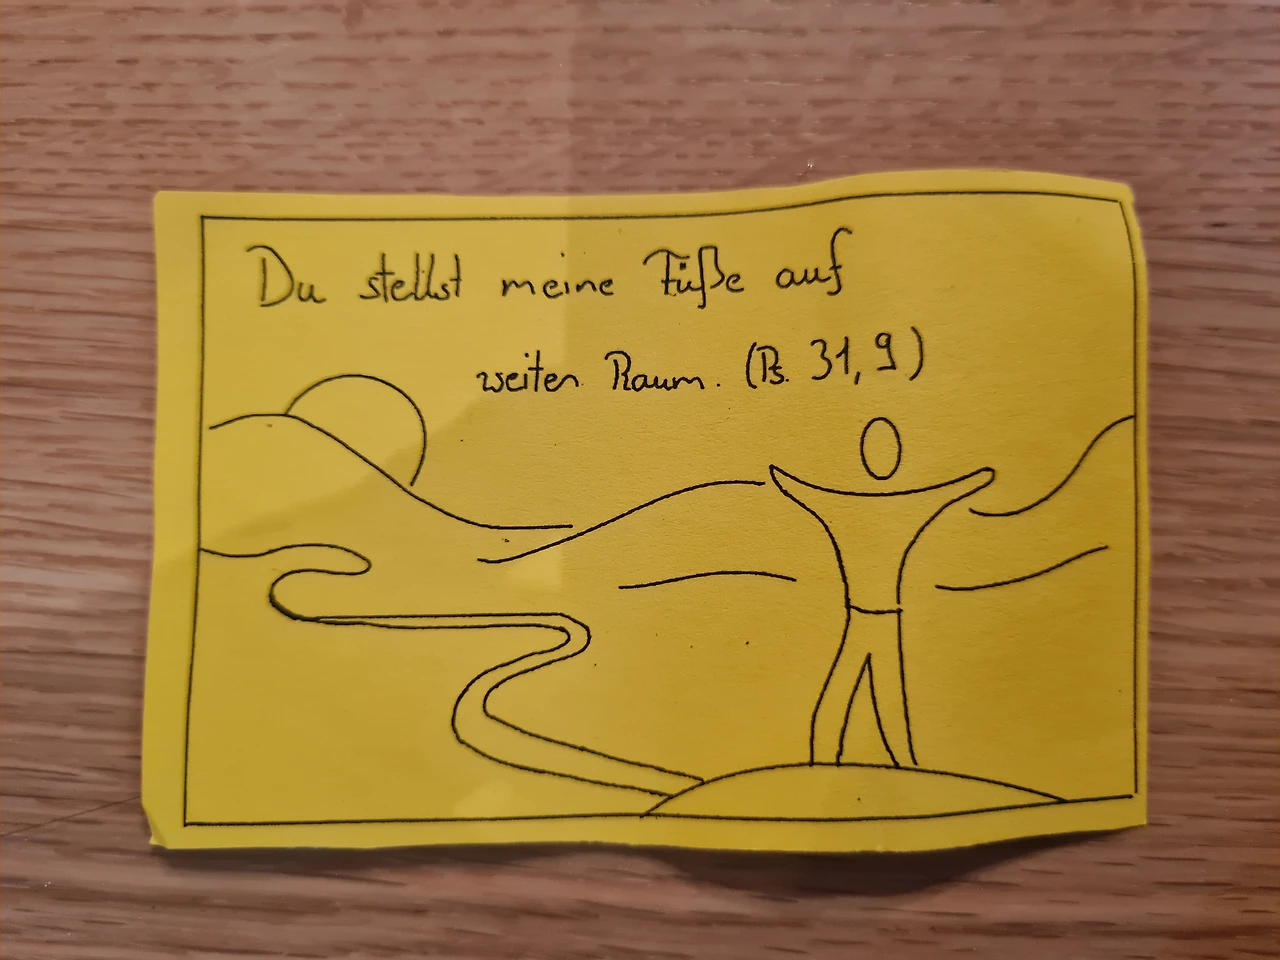 Du stellst meine Füße auf
weiten Raum. (Ps. 31,9)